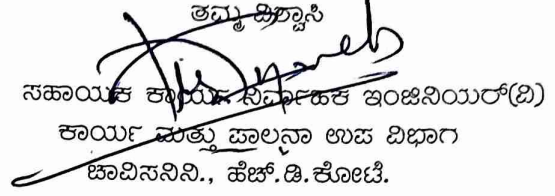 ತಮ್ಮ ವಿಶ್ವಾಸಿ
ಸಹಾಯಕ ಕಾರ್ಯ ನಿರ್ವಾಹಕ ಇಂಜಿನಿಯರ್(ವಿ)
ಕಾರ್ಯ ಮತ್ತು ಪಾಲನಾ ಉಪ ವಿಭಾಗ
ಚಾವಿಸನಿನಿ., ಹೆಚ್.ಡಿ.ಕೋಟೆ.